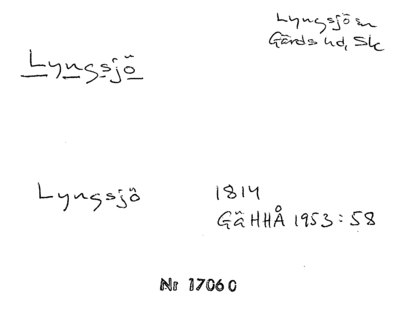 Lyngsjö sn
Gärds hd, Sk
Lyngsjö
Lyngsjö 1814
GäHHÅ 1953:58
Nr 17060